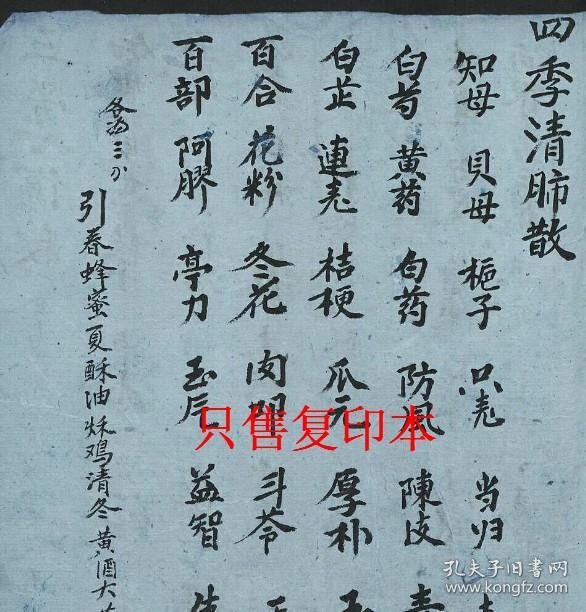 四季清肺散
知母 贝母 栀子 只壳 当归
白芍 黄药 白药 防风 陳皮
白芷 連壳 桔梗 瓜元 厚朴
百合 花粉 冬花 肉 斗苓
百部 阿膠 亭力 玉 益智
各为三分
引春蜂蜜夏酥油秌鸡清冬黄酒大
只售复印本
孔夫子旧书网
www.kongfz.com